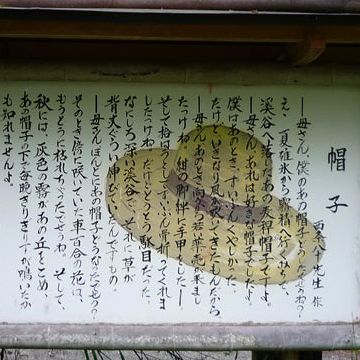 帽子
西条八十先生作
―母さん、僕のあの帽子どうしたでせうね?
え、夏碓氷から霧積へ行くみちで、
渓谷へ落したあの麦稈帽子ですよ。
―母さん、あれは好きな帽子でしたよ。
僕はあのときずいぶんくやしかった。
だけどいきなり風が吹いてきたもんだから
―母さん、あのとき向から若い薬売が来まし
たっけね。紺の脚絆に手甲をした―
そして拾はうとしてずいぶん骨折ってくれま
したっけね。だけどとうとう駄目だった。
なにしろ深い渓谷で、それに草が
背丈ぐらい伸びていたんですもの。
―母さんほんとにあの帽子どうなったでせう?
そのとき傍に咲いていた車百合の花は、
もうとうに枯れちゃったでせうね。そして、
秋には、灰色の霧があの丘をこめ、
あの帽子の下で毎晩きりぎりすが鳴いたか
も知れませんよ。